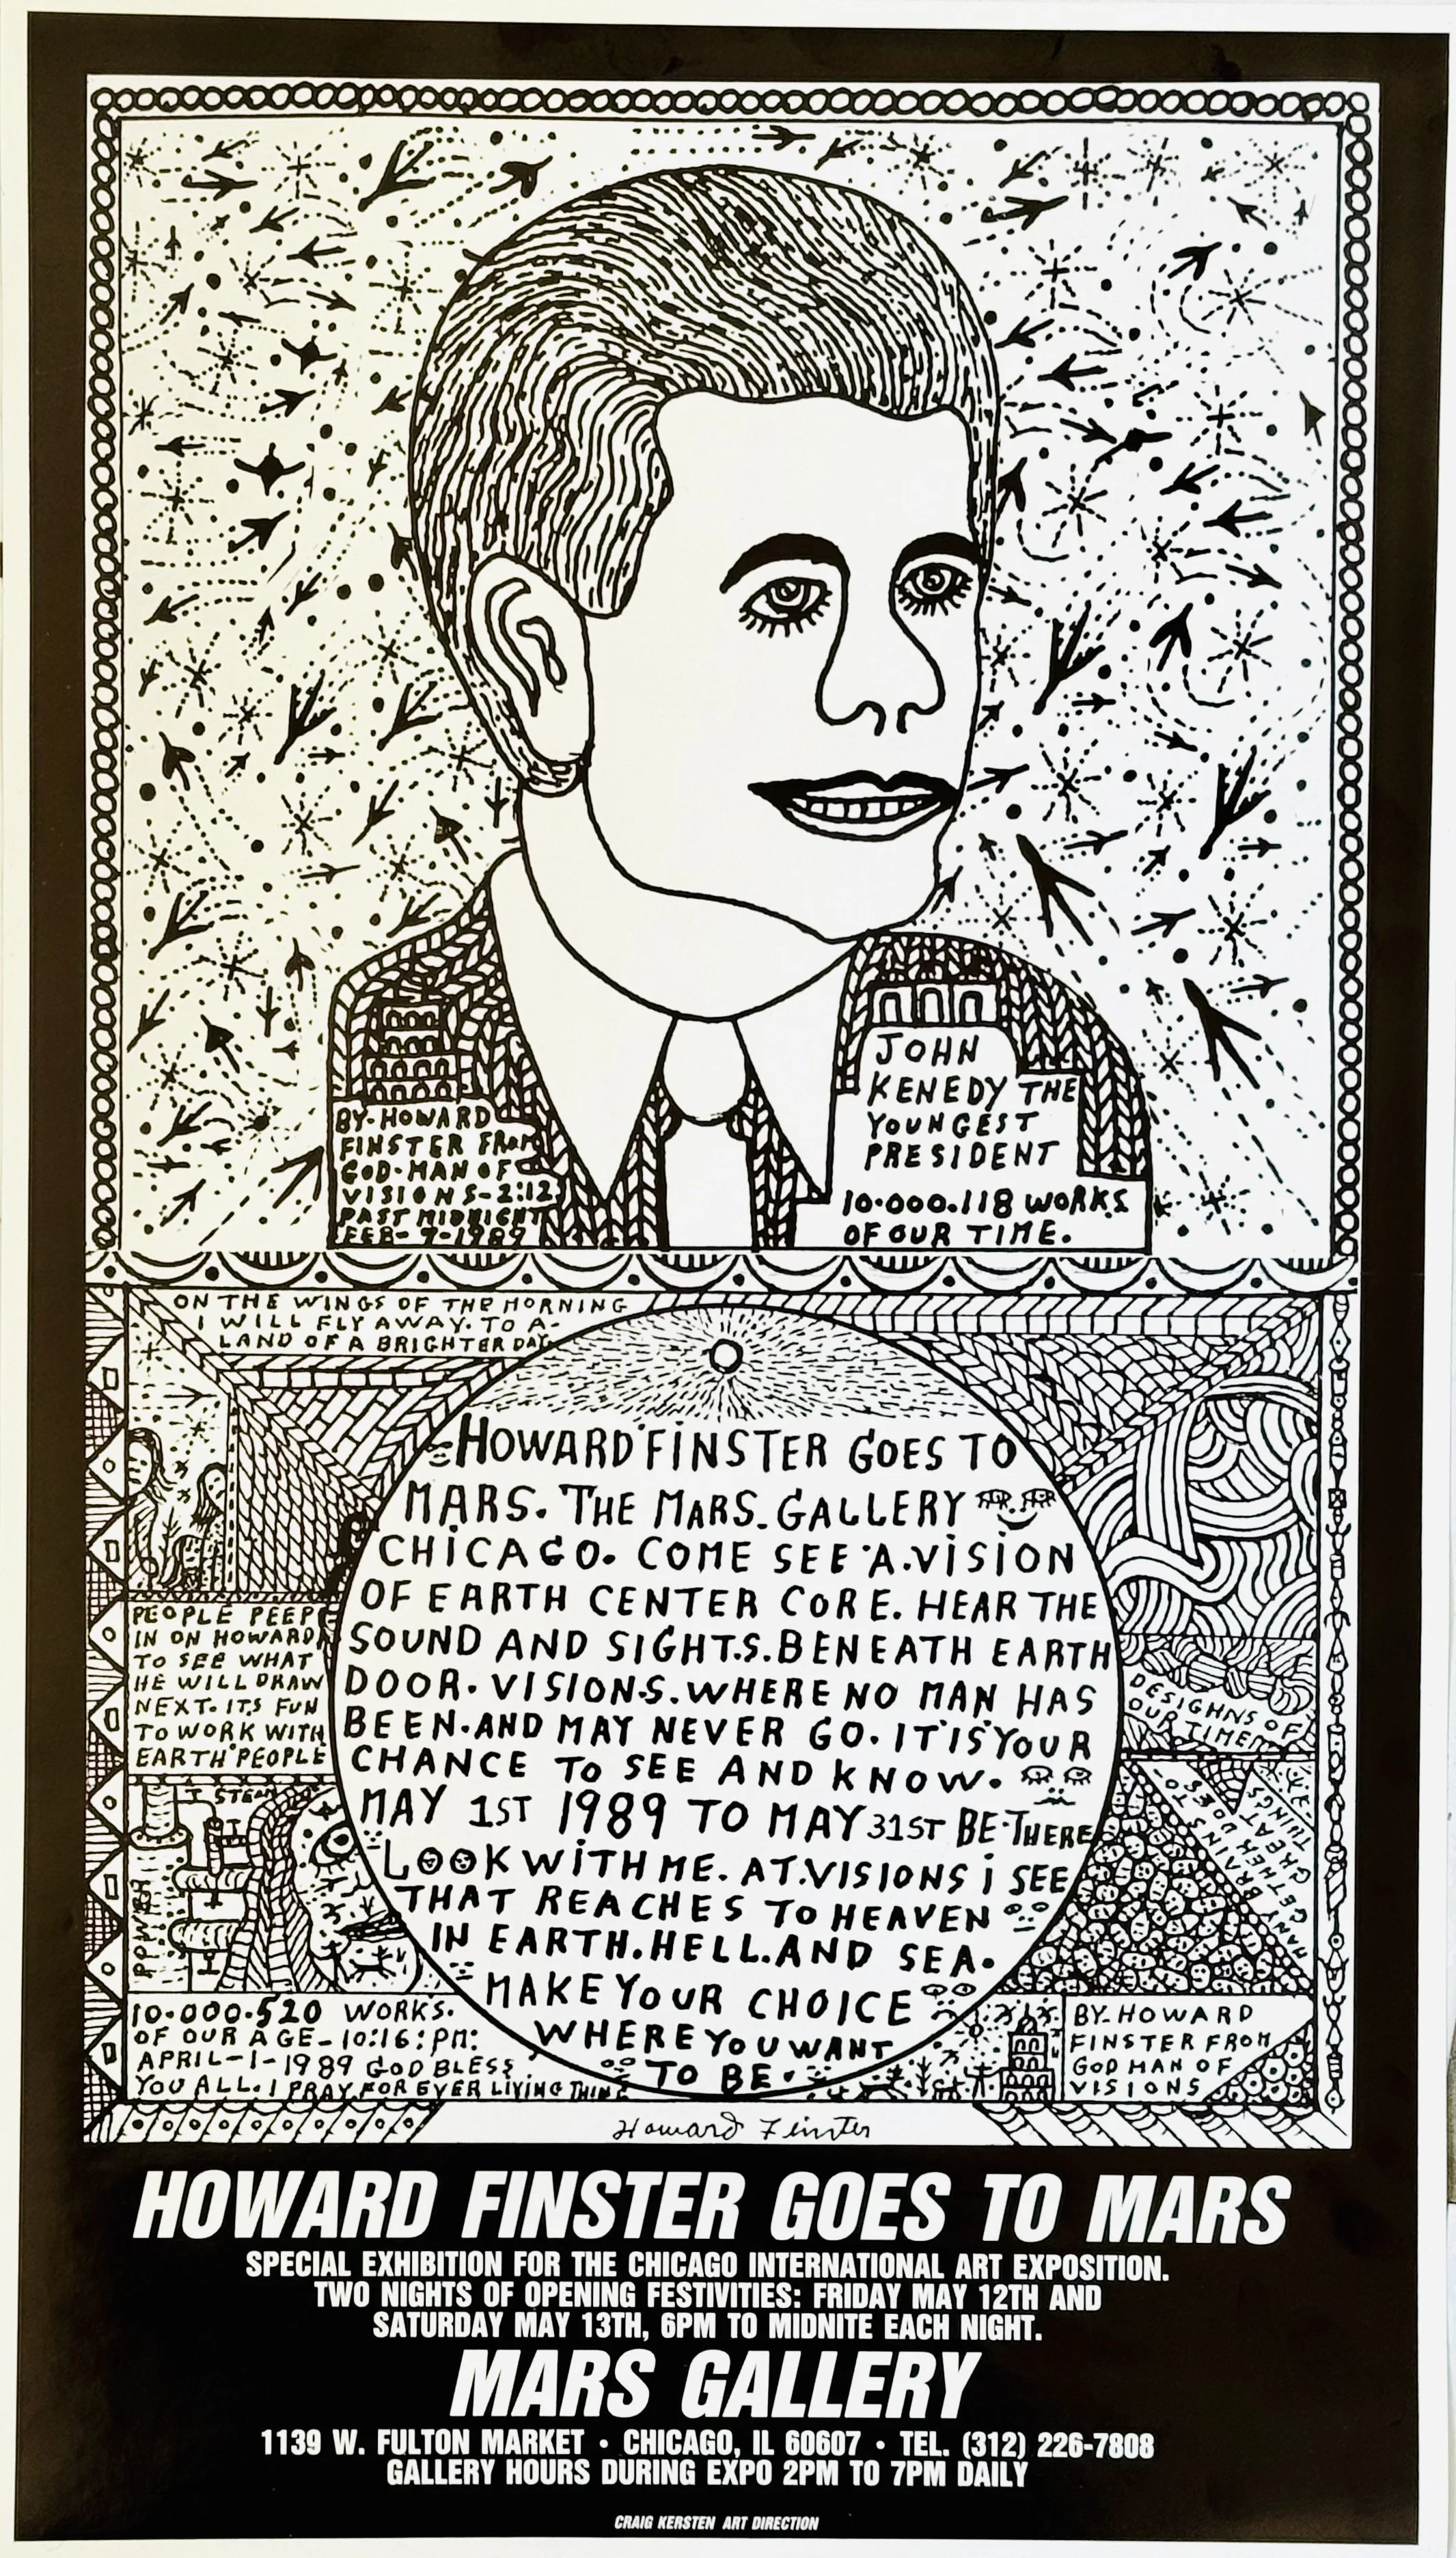 JOHN
KENEDY THE
YOUNGEST
PRESIDENT
10.000.118 WORKS
OF OUR TIME.
BY-HOWARD
FINSTER FROM
GOD-MAN OF
VISIONS-2:12
PAST MIDNIGHT
FEB-7-1989
ON THE WINGS OF THE MORNING
I WILL FLY AWAY. TO A-
LAND OF A BRIGHTER DAY
HOWARD FINSTER GOES TO
MARS. THE MARS. GALLERY
CHICAGO. COME SEE A. VISION
OF EARTH CENTER CORE. HEAR THE
SOUND AND SIGHTS. BENEATH EARTH
DOOR. VISIONS. WHERE NO MAN HAS
BEEN. AND MAY NEVER GO. IT IS YOUR
CHANCE TO SEE AND KNOW.
MAY 1ST 1989 TO MAY 31ST BE-THERE
LOOK WITH ME. AT. VISIONS i SEE
THAT REACHES TO HEAVEN
IN EARTH. HELL. AND SEA.
MAKE YOUR CHOICE
WHERE YOU WANT
TO BE.
PEOPLE PEEP
IN ON HOWARD
TO SEE WHAT
HE WILL DRAW
NEXT. ITS FUN
TO WORK WITH
EARTH PEOPLE
STEAM
POWER
DESIGHNS OF
OUR TIME
10.000.520 WORKS.
OF OUR AGE-10:16:PM:
APRIL-1-1989 GOD BLESS
YOU ALL. I PRAY FOR EVER LIVING THING
BY-HOWARD
FINSTER FROM
GOD MAN OF
VISIONS
Howard Finster
HOWARD FINSTER GOES TO MARS
SPECIAL EXHIBITION FOR THE CHICAGO INTERNATIONAL ART EXPOSITION.
TWO NIGHTS OF OPENING FESTIVITIES: FRIDAY MAY 12TH AND
SATURDAY MAY 13TH, 6PM TO MIDNITE EACH NIGHT.
MARS GALLERY
1139 W. FULTON MARKET • CHICAGO, IL 60607 • TEL. (312) 226-7808
GALLERY HOURS DURING EXPO 2PM TO 7PM DAILY
CRAIG KERSTEN ART DIRECTION